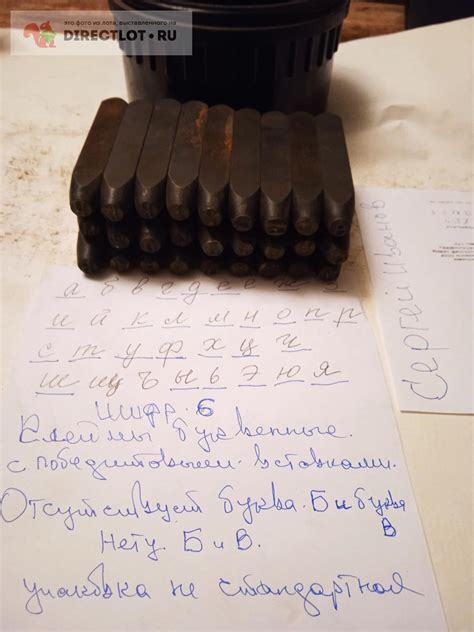 это фото из лота, выставленного на
DIRECTLOT.RU
Сергей Иванов
а б в г д е ё ж з
и й к л м н о п р
с т у ф х ц ч
ш щ ъ ы ь э ю я
цифр. 6
Клеймы буквенные.
с победитовыми вставками.
Отсутствует буква. Б и буква
В
Нету. Б и В.
упаковка не стандартная